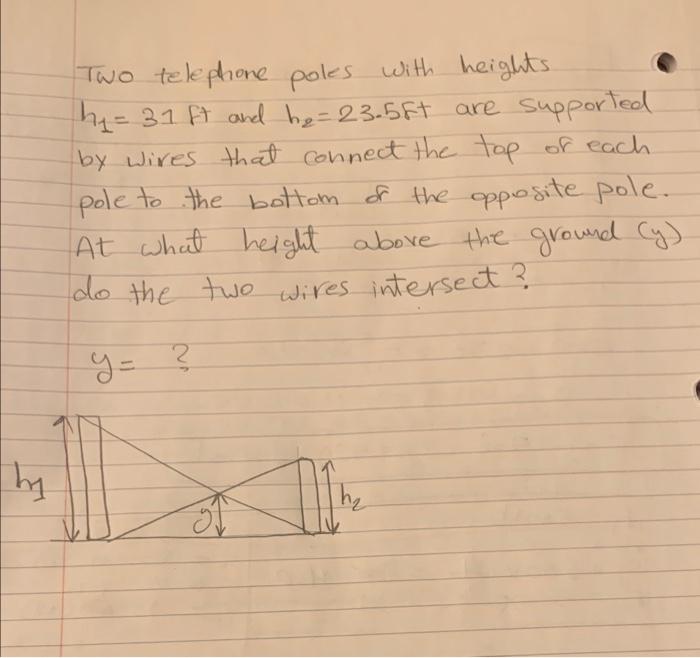 Two telephone poles with heights
h1 = 31 ft and h2 = 23.5ft are supported
by wires that connect the top of each
pole to the bottom of the opposite pole.
At what height above the ground (y)
do the two wires intersect?
y = ?
h1
y
h2